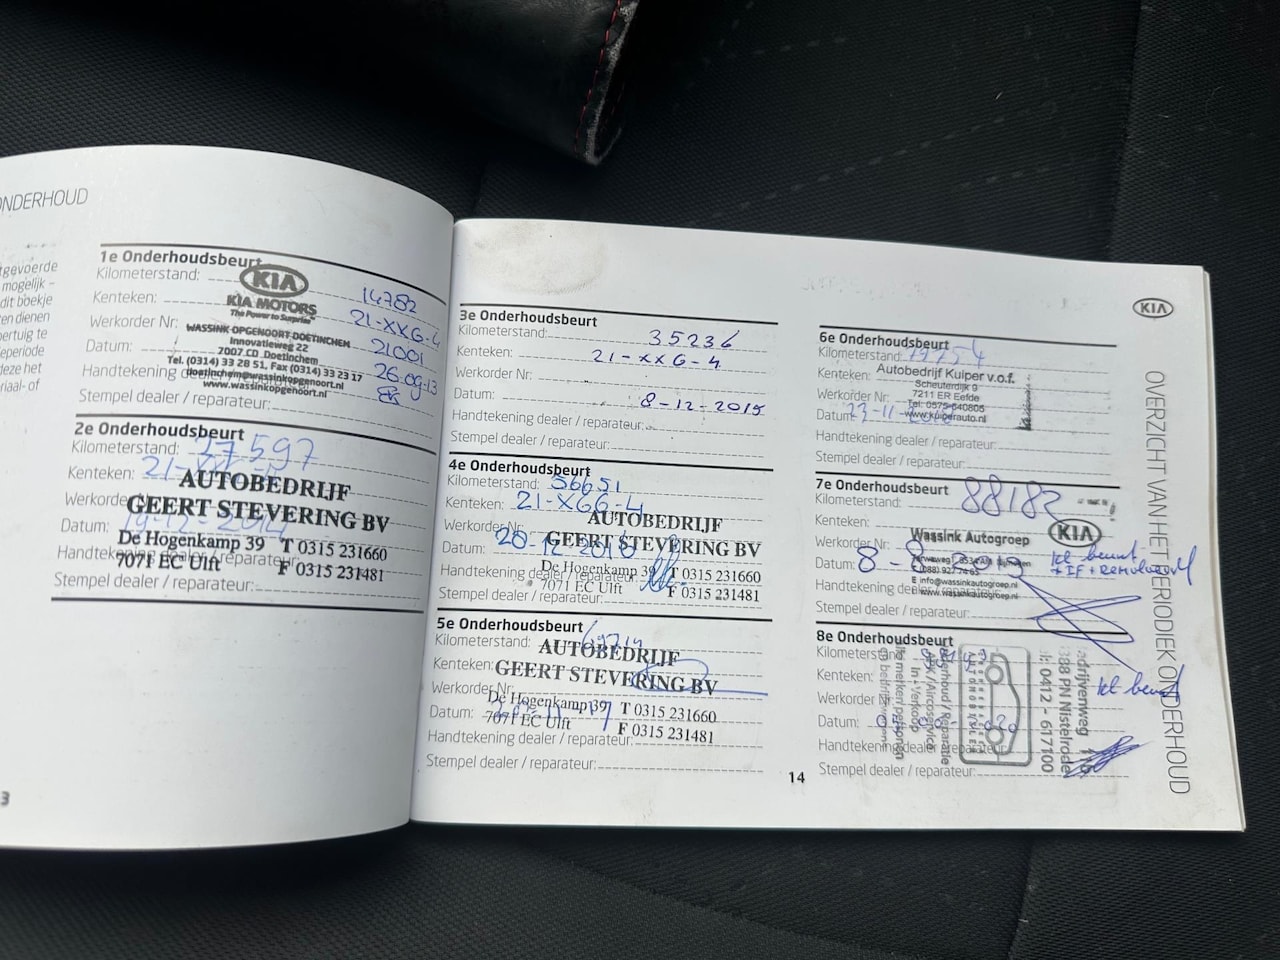 ONDERHOUD
tgevoerde
mogelijk –
dit boekje
en dienen
ertuig te
eperiode
deze het
riaal- of
1e Onderhoudsbeurt
Kilometerstand: 14782
Kenteken: 21-XXG-4
Werkorder Nr: 21001
Datum: 26-09-13
Handtekening
Stempel dealer / reparateur:
KIA
KIA MOTORS
The Power to Surprise
WASSINK OPGENOORT DOETINCHEM
Innovatieweg 22
7007 CD Doetinchem
Tel. (0314) 33 28 51, Fax (0314) 33 23 17
doetinchem@wassinkopgenoort.nl
www.wassinkopgenoort.nl
2e Onderhoudsbeurt
Kilometerstand: 27597
Kenteken:
Werkorder
Datum: 19-12-2014
Handtekening dealer / reparateur:
Stempel dealer / reparateur:
AUTOBEDRIJF
GEERT STEVERING BV
De Hogenkamp 39 T 0315 231660
7071 EC Ulft F 0315 231481
3
3e Onderhoudsbeurt
Kilometerstand: 35236
Kenteken: 21-XXG-4
Werkorder Nr:
Datum: 8-12-2015
Handtekening dealer / reparateur:
Stempel dealer / reparateur:
4e Onderhoudsbeurt
Kilometerstand: 56651
Kenteken: 21-XGG-4
Werkorder Nr:
Datum: 20-12-2016
Handtekening dealer / reparateur:
Stempel dealer / reparateur:
AUTOBEDRIJF
GEERT STEVERING BV
De Hogenkamp 39 T 0315 231660
7071 EC Ulft F 0315 231481
5e Onderhoudsbeurt
Kilometerstand:
Kenteken:
Werkorder Nr:
Datum:
Handtekening dealer / reparateur:
Stempel dealer / reparateur:
AUTOBEDRIJF
GEERT STEVERING BV
De Hogenkamp 39 T 0315 231660
7071 EC Ulft F 0315 231481
14
KIA
6e Onderhoudsbeurt
Kilometerstand: 79754
Kenteken:
Werkorder Nr:
Datum: 23-11-
Handtekening dealer / reparateur:
Stempel dealer / reparateur:
Autobedrijf Kuiper v.o.f.
Scheuterdijk 9
7211 ER Eefde
Tel: 0575-540805
www.kuiperauto.nl
7e Onderhoudsbeurt
Kilometerstand: 88182
Kenteken:
Werkorder Nr:
Datum: 8-8-
Handtekening dealer / reparateur:
Stempel dealer / reparateur:
Wassink Autogroep
E info@wassinkautogroep.nl
www.wassinkautogroep.nl
KIA
kl beurt
8e Onderhoudsbeurt
Kilometerstand:
Kenteken:
Werkorder Nr:
Datum:
Handtekening dealer / reparateur:
Stempel dealer / reparateur:
Onderhoud / Reparatie
APK / Aircoservice
In- Verkoop
388 PN Nistelrode
: 0412 - 617100
kl beurt
OVERZICHT VAN HET PERIODIEK ONDERHOUD